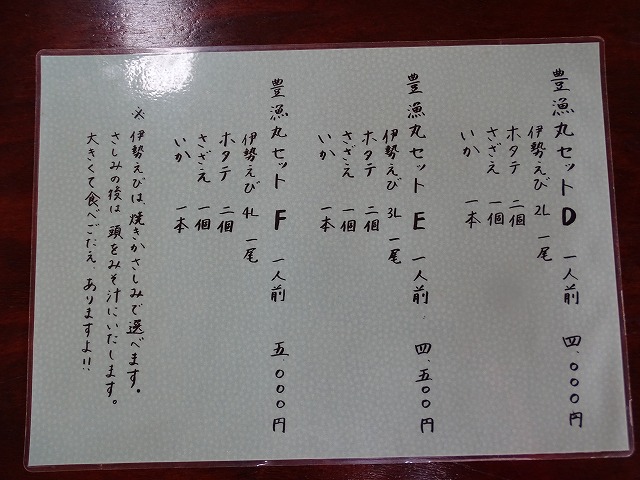 豊漁丸セット D 一人前 四、〇〇〇円
伊勢えび 2L 一尾
ホタテ 二個
さざえ 一個
いか 一本
豊漁丸セット E 一人前 四、五〇〇円
伊勢えび 3L 一尾
ホタテ 二個
さざえ 一個
いか 一本
豊漁丸セット F 一人前 五、〇〇〇円
伊勢えび 4L 一尾
ホタテ 二個
さざえ 一個
いか 一本
※ 伊勢えびは、焼きかさしみで選べます。
さしみの後は 頭をみそ汁にいたします。
大きくて食べごたえ、ありますよ!!